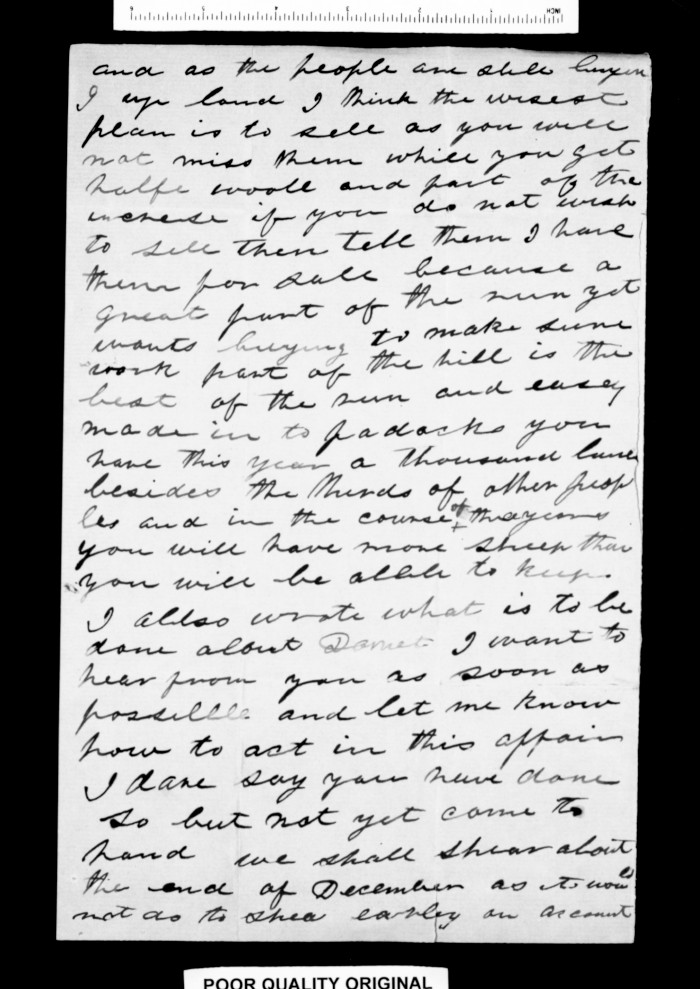 and as the people are still
I up land I think the wisest
plan is to sell as you will
not miss them while you get
halfe wooll and part of the
increse if you do not wish
to sell then tell them I have
them for sale because a
great part of the run yet
wants buying to make sure
work part of the hill is the
best of the run and easey
made in to padocks you
have this year a thousand
besides the thirds of other peop
les and in the course of the years
you will have more sheep than
you will be abble to keep
I allso wrote what is to be
done about I want to
hear from you as soon as
possiblle and let me know
how to act in this affair
I dare say you have done
so but not yet come to
hand we shall shear about
the end of December as it
not do to shea earley on account
POOR QUALITY ORIGINAL
INCH